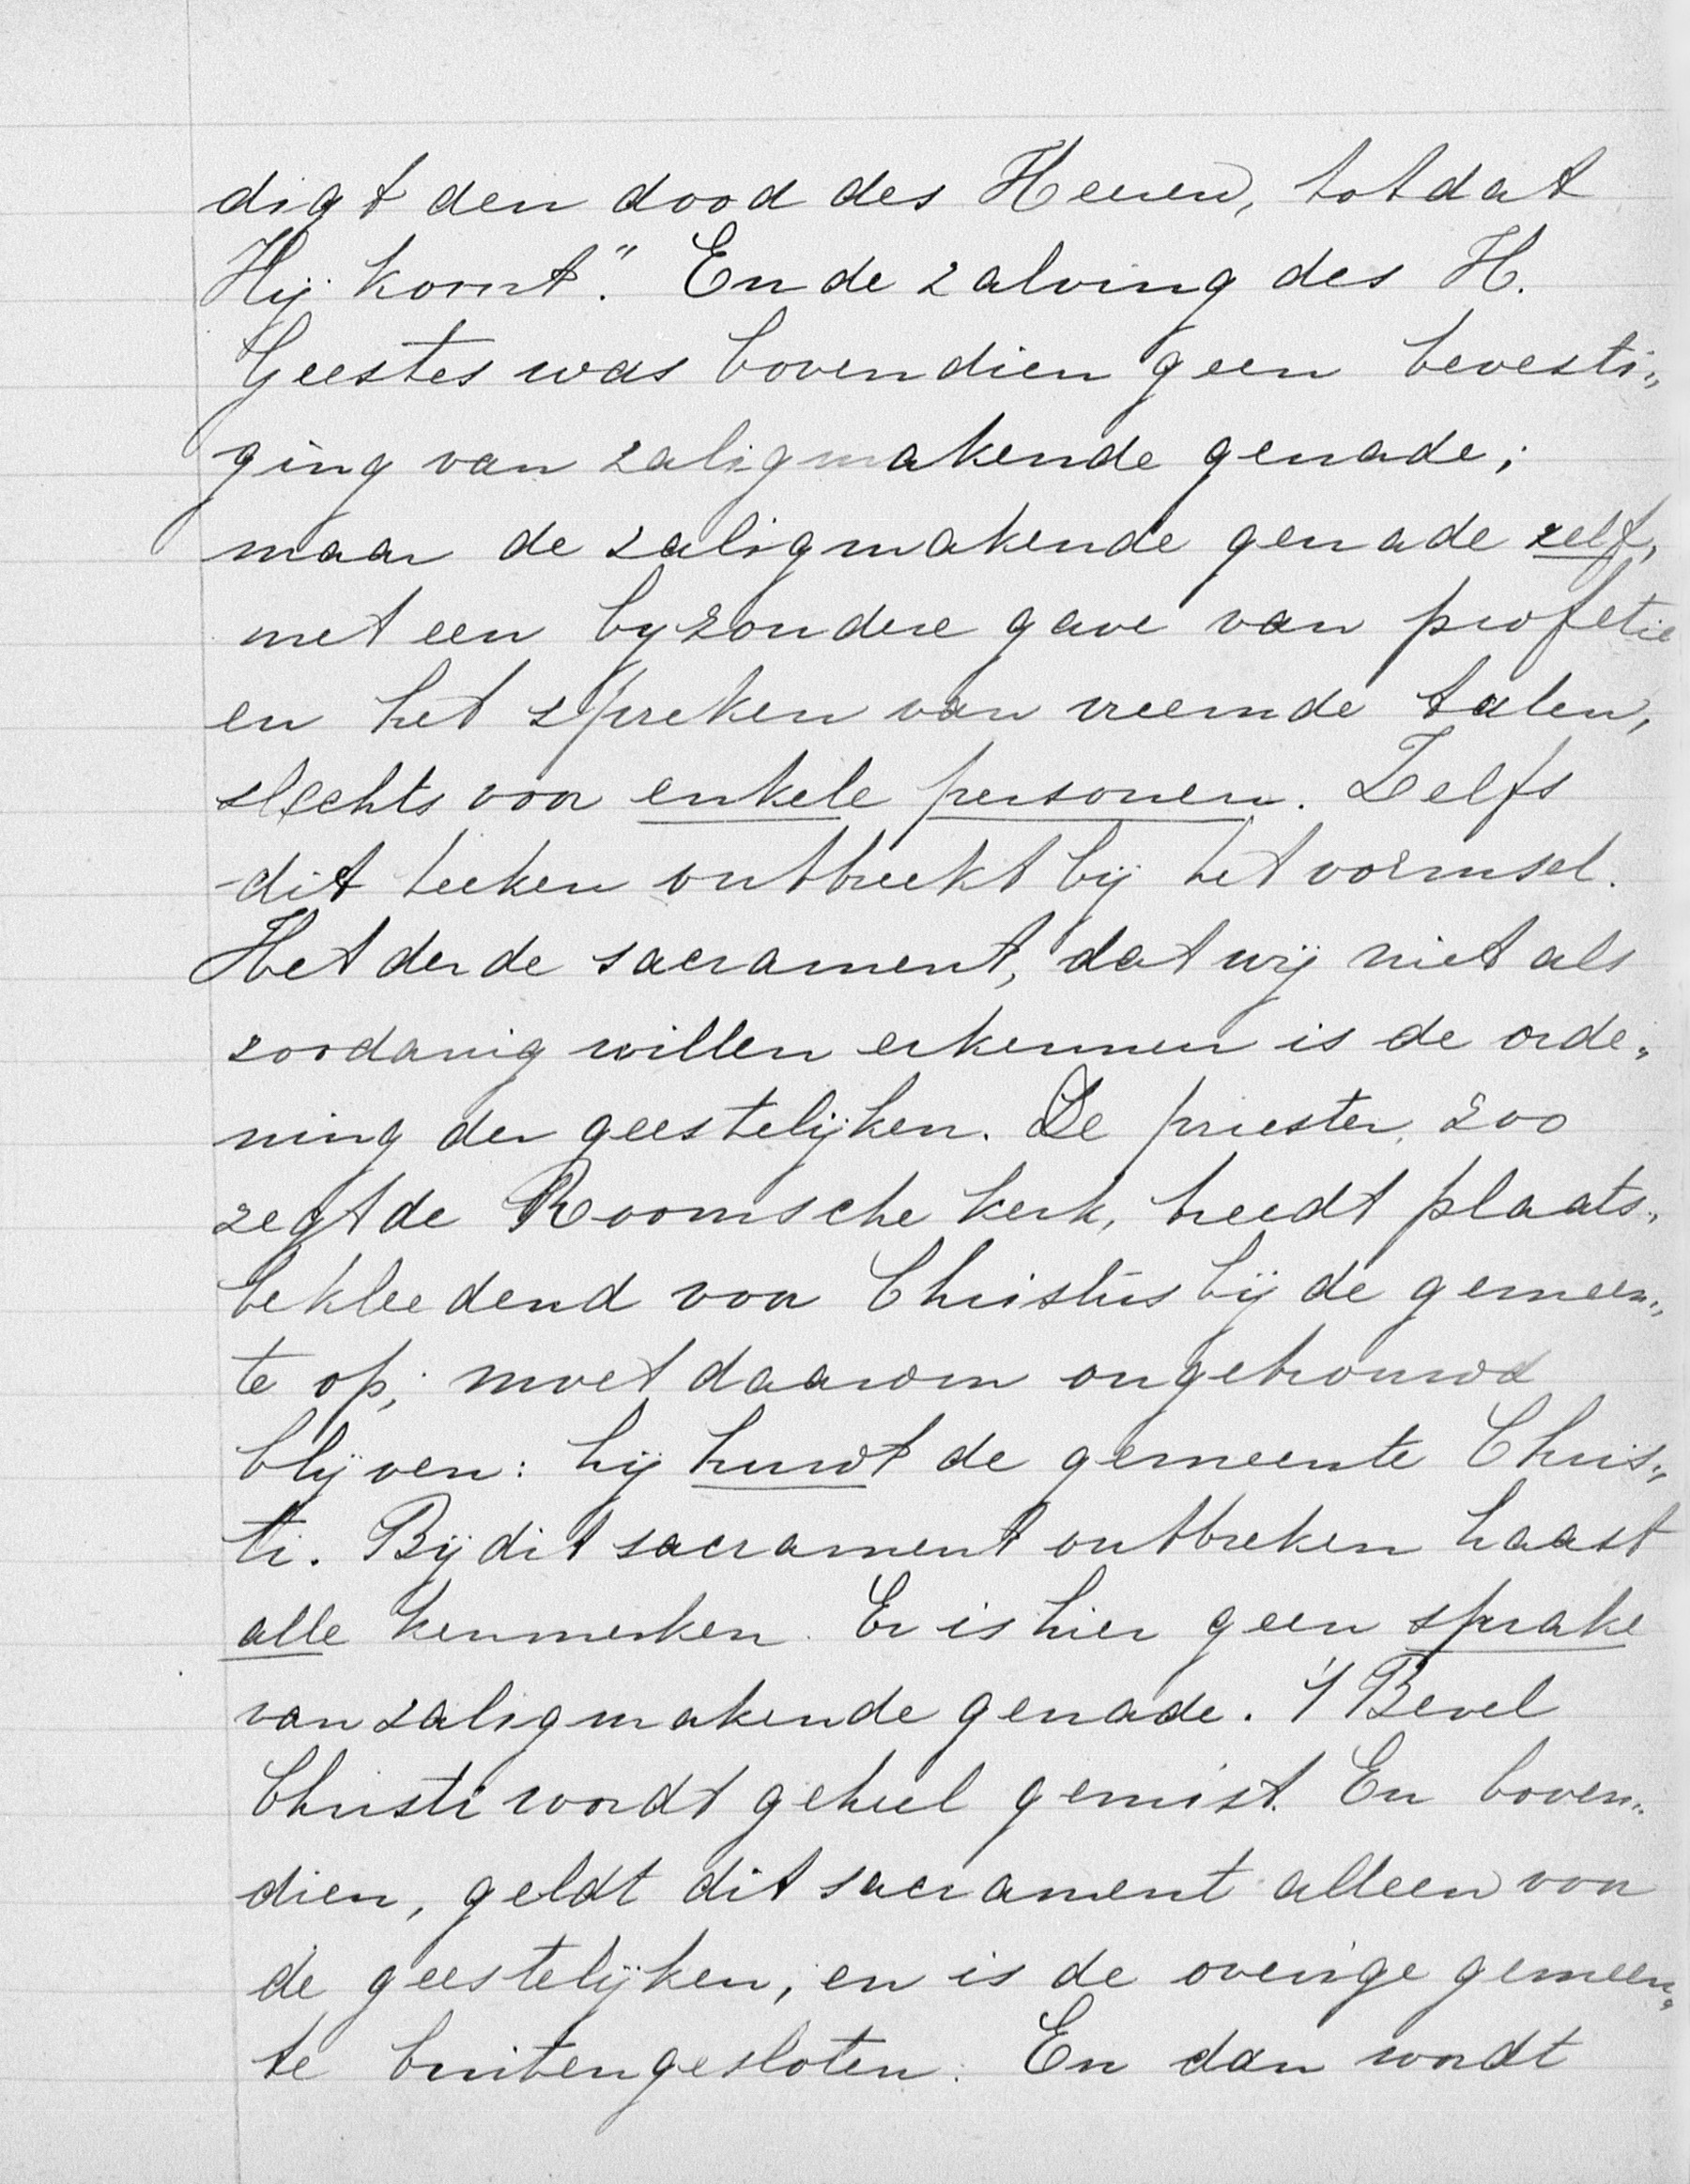 digt den dood des Heeren, totdat
Hij komt." En de zalving des H.
Geestes was bovendien geen bevesti„
ging van zaligmakende genade;
maar de zaligmakende genade zelf,
met een byzondere gave van profetie
en het spreken van vreemde talen,
slechts voor enkele personen. Zelfs
dit teeken ontbreekt bij het vormsel.
Het derde sacrament, dat wij niet als
zoodanig willen erkennen is de orde„
ning der geestelijken. De priester, zoo
zegt de Roomsche kerk, treedt plaats„
bekleedend voor Christus bij de gemeen„
te op; moet daarom ongetrouwd
blijven: hij huwt de gemeente Chris„
ti. Bij dit sacrament ontbreken haast
alle kenmerken. Er is hier geen sprake
van zaligmakende genade. 't Bevel
Christi wordt geheel gemist. En boven„
dien, geldt dit sacrament alleen voor
de geestelijken, en is de overige gemeen„
te buitengesloten. En dan wordt